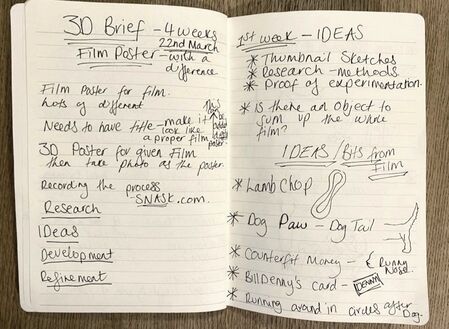 3D Brief - 4 weeks
22nd March
Film Poster - with a
difference
Film Poster for film.
Lots of different
Needs to have title - make it
look like
a proper film
poster.
3D Poster for given Film
then take photo as the poster
Recording the process
- SNASK.com.
Research
IDeas
Development
Refinement
1st week - IDEAS
* Thumbnail Sketches
* Research - methods.
* Proof of experimentation.
* Is there an Object to
sum up the whole
film?
IDEAS / Bits from
Film
* Lamb Chop
* Dog Paw - Dog Tail
* Counterfit Money - Runny
Nose.
* Bill Denny's card - DENNY
* Running around in circles after
Dog.